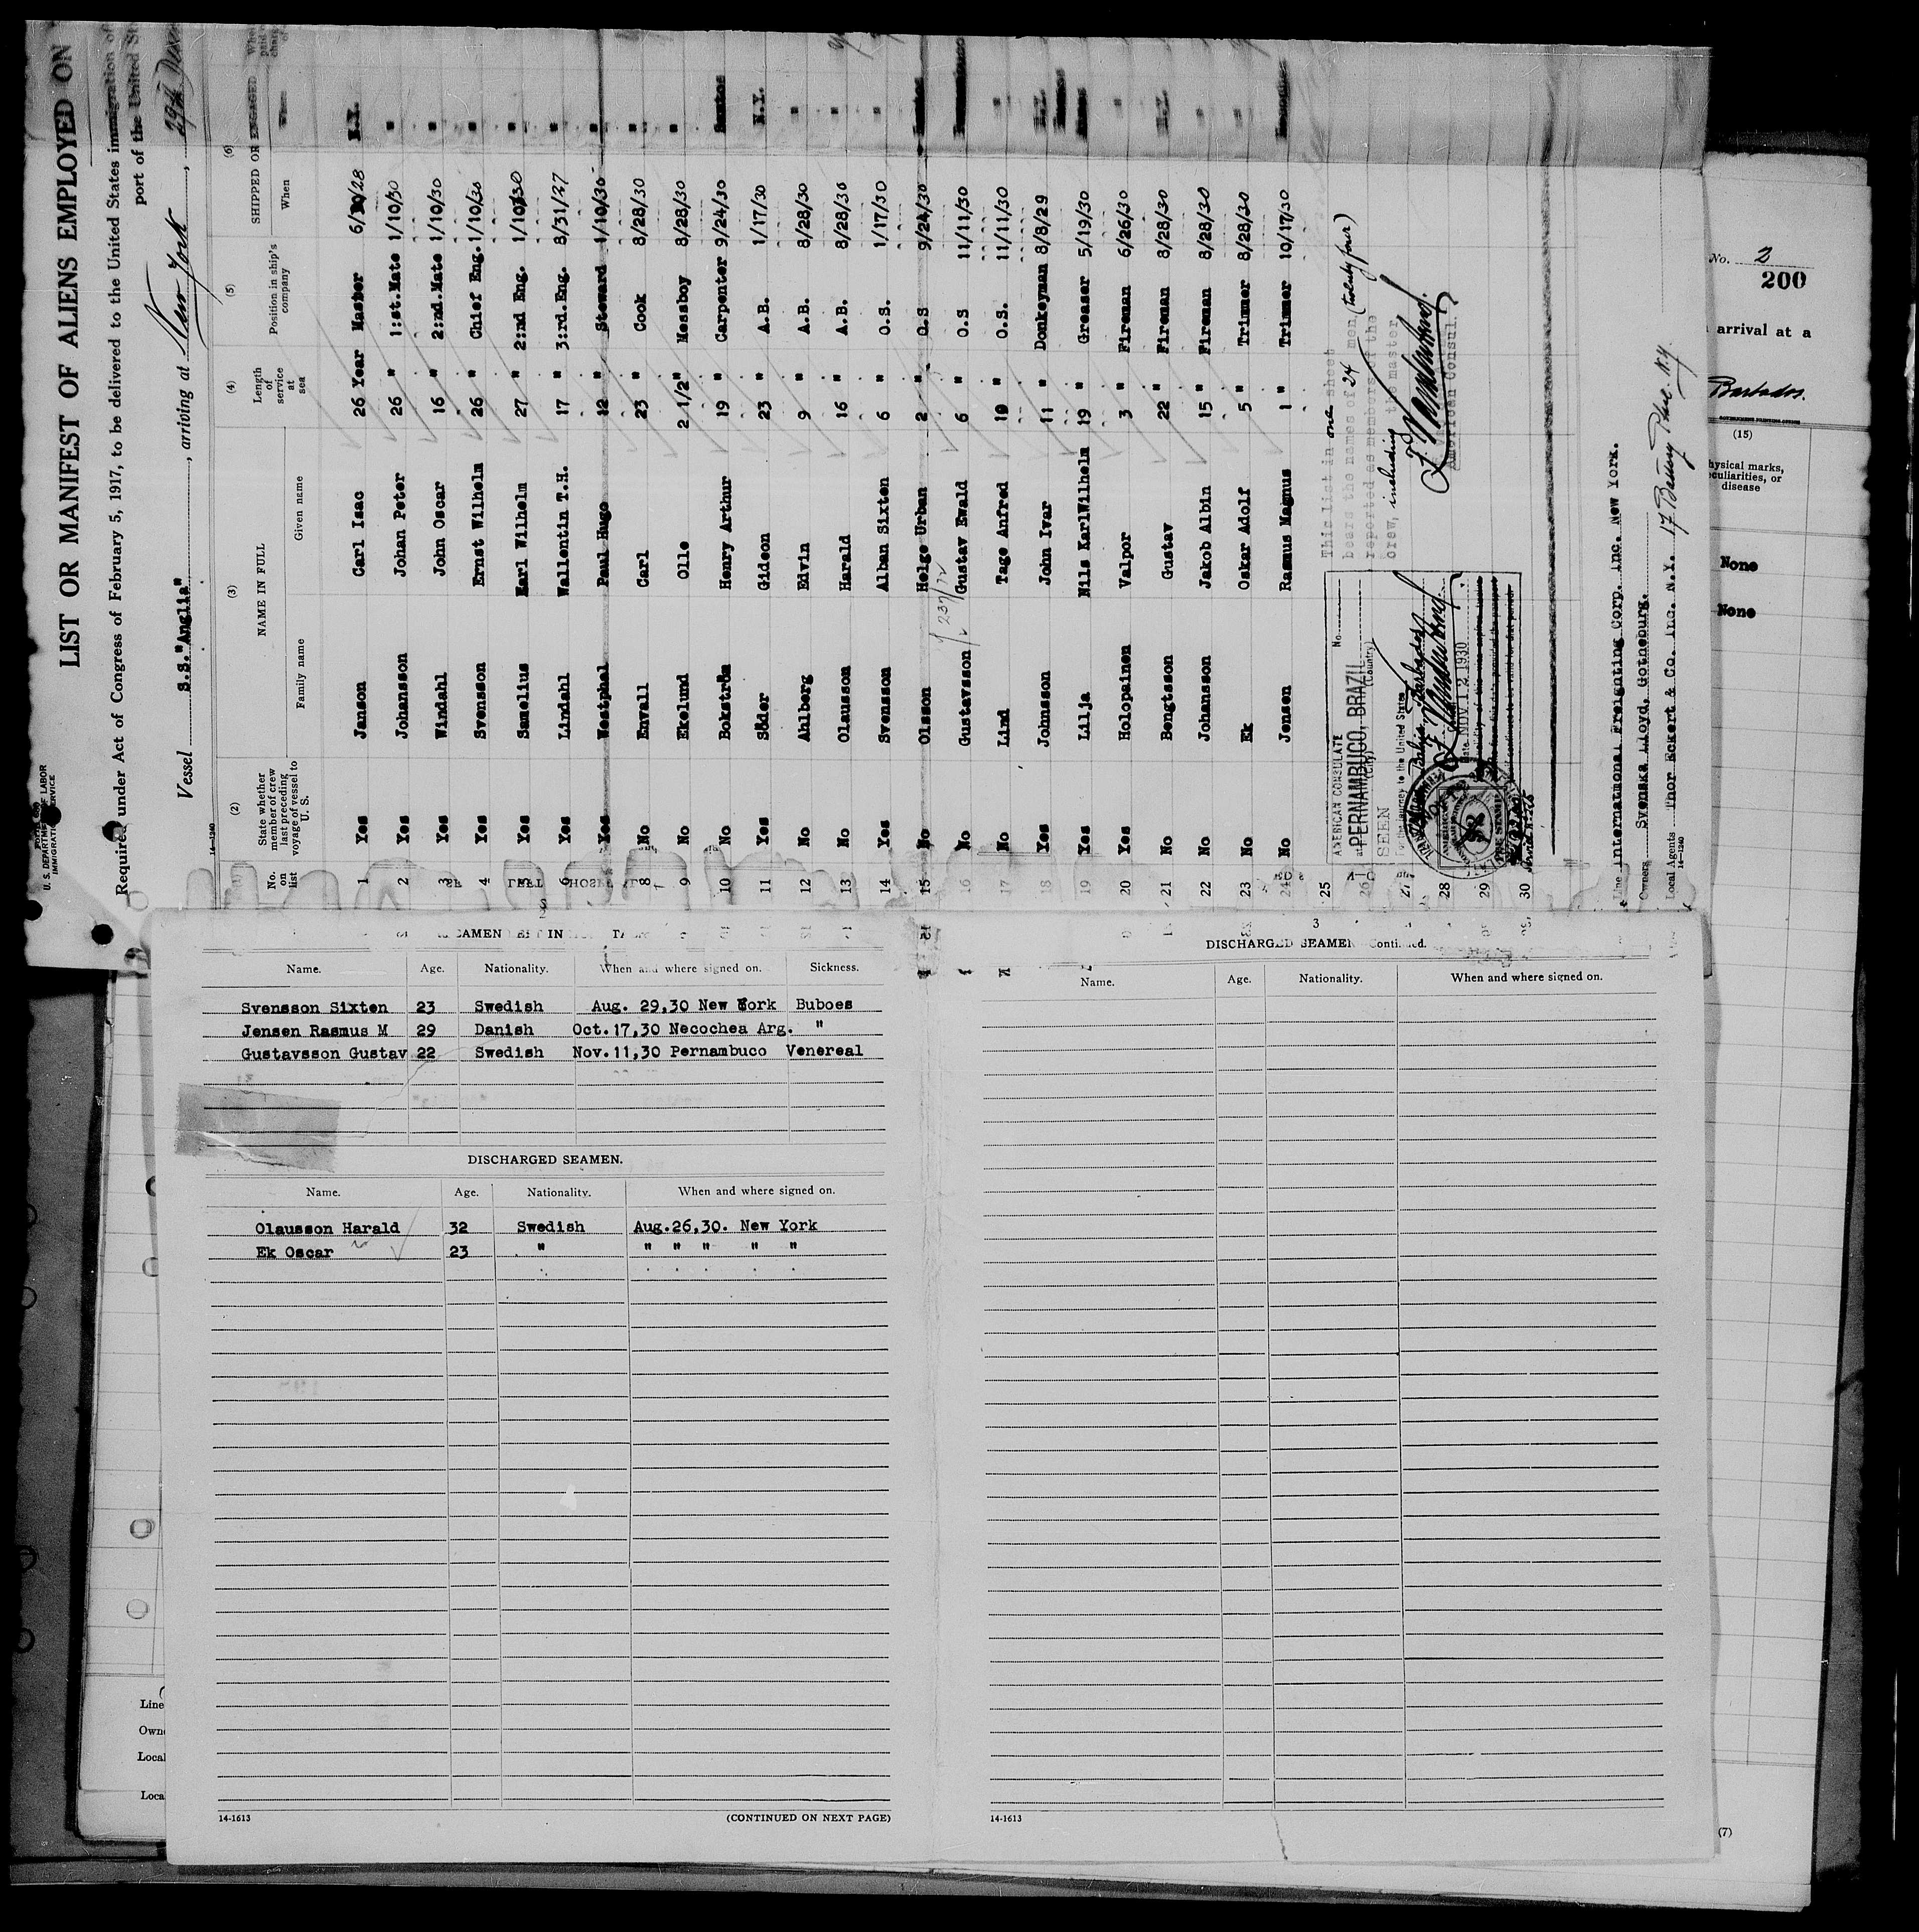 LIST OR MANIFEST OF ALIENS EMPLOYED ON
U. S. DEPARTMENT OF LABOR
IMMIGRATION SERVICE
Required under Act of Congress of February 5, 1917, to be delivered to the United States immigration of
port of the United St
Vessel S.S."Anglia", arriving at New York, 29th
14-1240
(1) (2) (3) (4) (5) (6)
No. on list
State whether member of crew last preceding voyage of vessel to U. S.
NAME IN FULL
Family name Given name
Length of service at sea
Position in ship's company
SHIPPED OR ENGAGED
When Where
1 Yes Janson Carl Isac 26 Year Master 6/20/28 N.Y.
2 Yes Johansson Johan Peter 26 " 1:st.Mate 1/10/30 "
3 Yes Windahl John Oscar 16 " 2:nd.Mate 1/10/30 "
4 Yes Svensson Ernst Wilhelm 26 " Chief Eng. 1/10/30 "
5 Yes Samelius Karl Wilhelm 27 " 2:nd Eng. 1/10/30 "
6 Yes Lindahl Wallentin T.H. 17 " 3:rd.Eng. 8/31/27 "
7 Yes Westphal Paul Hugo 12 " Steward 1/10/30 "
8 No Envall Carl 23 " Cook 8/28/30 "
9 No Ekelund Olle 2 1/2" Messboy 8/28/30 "
10 No Bokström Henry Arthur 19 " Carpenter 9/24/30 Santos
11 Yes Söder Gideon 23 " A.B. 1/17/30 N.Y.
12 No Ahlberg Edvin 9 " A.B. 8/28/30 "
13 No Olausson Harald 16 " A.B. 8/28/30 "
14 Yes Svensson Alban Sixten 6 " O.S. 1/17/30 "
15 No Olsson Helge Urban 2 " O.S 9/24/30 Santos
16 No Gustavsson Gustav Ewald 6 " O.S 11/11/30 Pernambuco
17 No Lind Tage Anfred 10 " O.S. 11/11/30 "
18 Yes Johnsson John Ivar 11 " Donkeyman 8/8/29 N.Y.
19 Yes Lilja Nils KarlWilhelm 19 " Greaser 5/19/30 Buenos Aires
20 Yes Holopainen Valpor 3 " Fireman 6/26/30 "
21 No Bengtsson Gustav 22 " Fireman 8/28/30 N.Y.
22 No Johansson Jakob Albin 15 " Fireman 8/28/30 "
23 No Ek Oskar Adolf 5 " Trimmer 8/28/30 "
24 No Jensen Rasmus Magnus 1 " Trimmer 10/17/30 Necochea
25
26
27
28
29
30
237/72
AMERICAN CONSULATE
No.
at PERNAMBUCO, BRAZIL
(City) (Country)
SEEN
For the journey to the United States
Date NOV 12 1930
This list in one sheet
bears the names of 24 men, (twenty four)
reported as members of the
crew, including the master
American Consul.
Line International Freighting Corp. Inc. New York.
Owners Svenska Lloyd, Gotneburg.
Local Agents Thor Eckert & Co. Inc. N.Y. 17 Battery Place. N.Y.
14-1240
No. 2
200
arrival at a
Barbados.
(15)
hysical marks,
culiarities, or
disease
None
None
Name. Age. Nationality. When and where signed on. Sickness.
Svensson Sixten 23 Swedish Aug. 29,30 New York Buboes
Jensen Rasmus M 29 Danish Oct.17,30 Necochea Arg. "
Gustavsson Gustav 22 Swedish Nov.11,30 Pernambuco Venereal
DISCHARGED SEAMEN.
Name. Age. Nationality. When and where signed on.
Olausson Harald 32 Swedish Aug.26,30. New York
Ek Oscar 23 " " " " " "
14-1613
(CONTINUED ON NEXT PAGE)
DISCHARGED SEAMEN—Continued.
Name. Age. Nationality. When and where signed on.
14-1613
Line
Own
Local
Loca
(7)